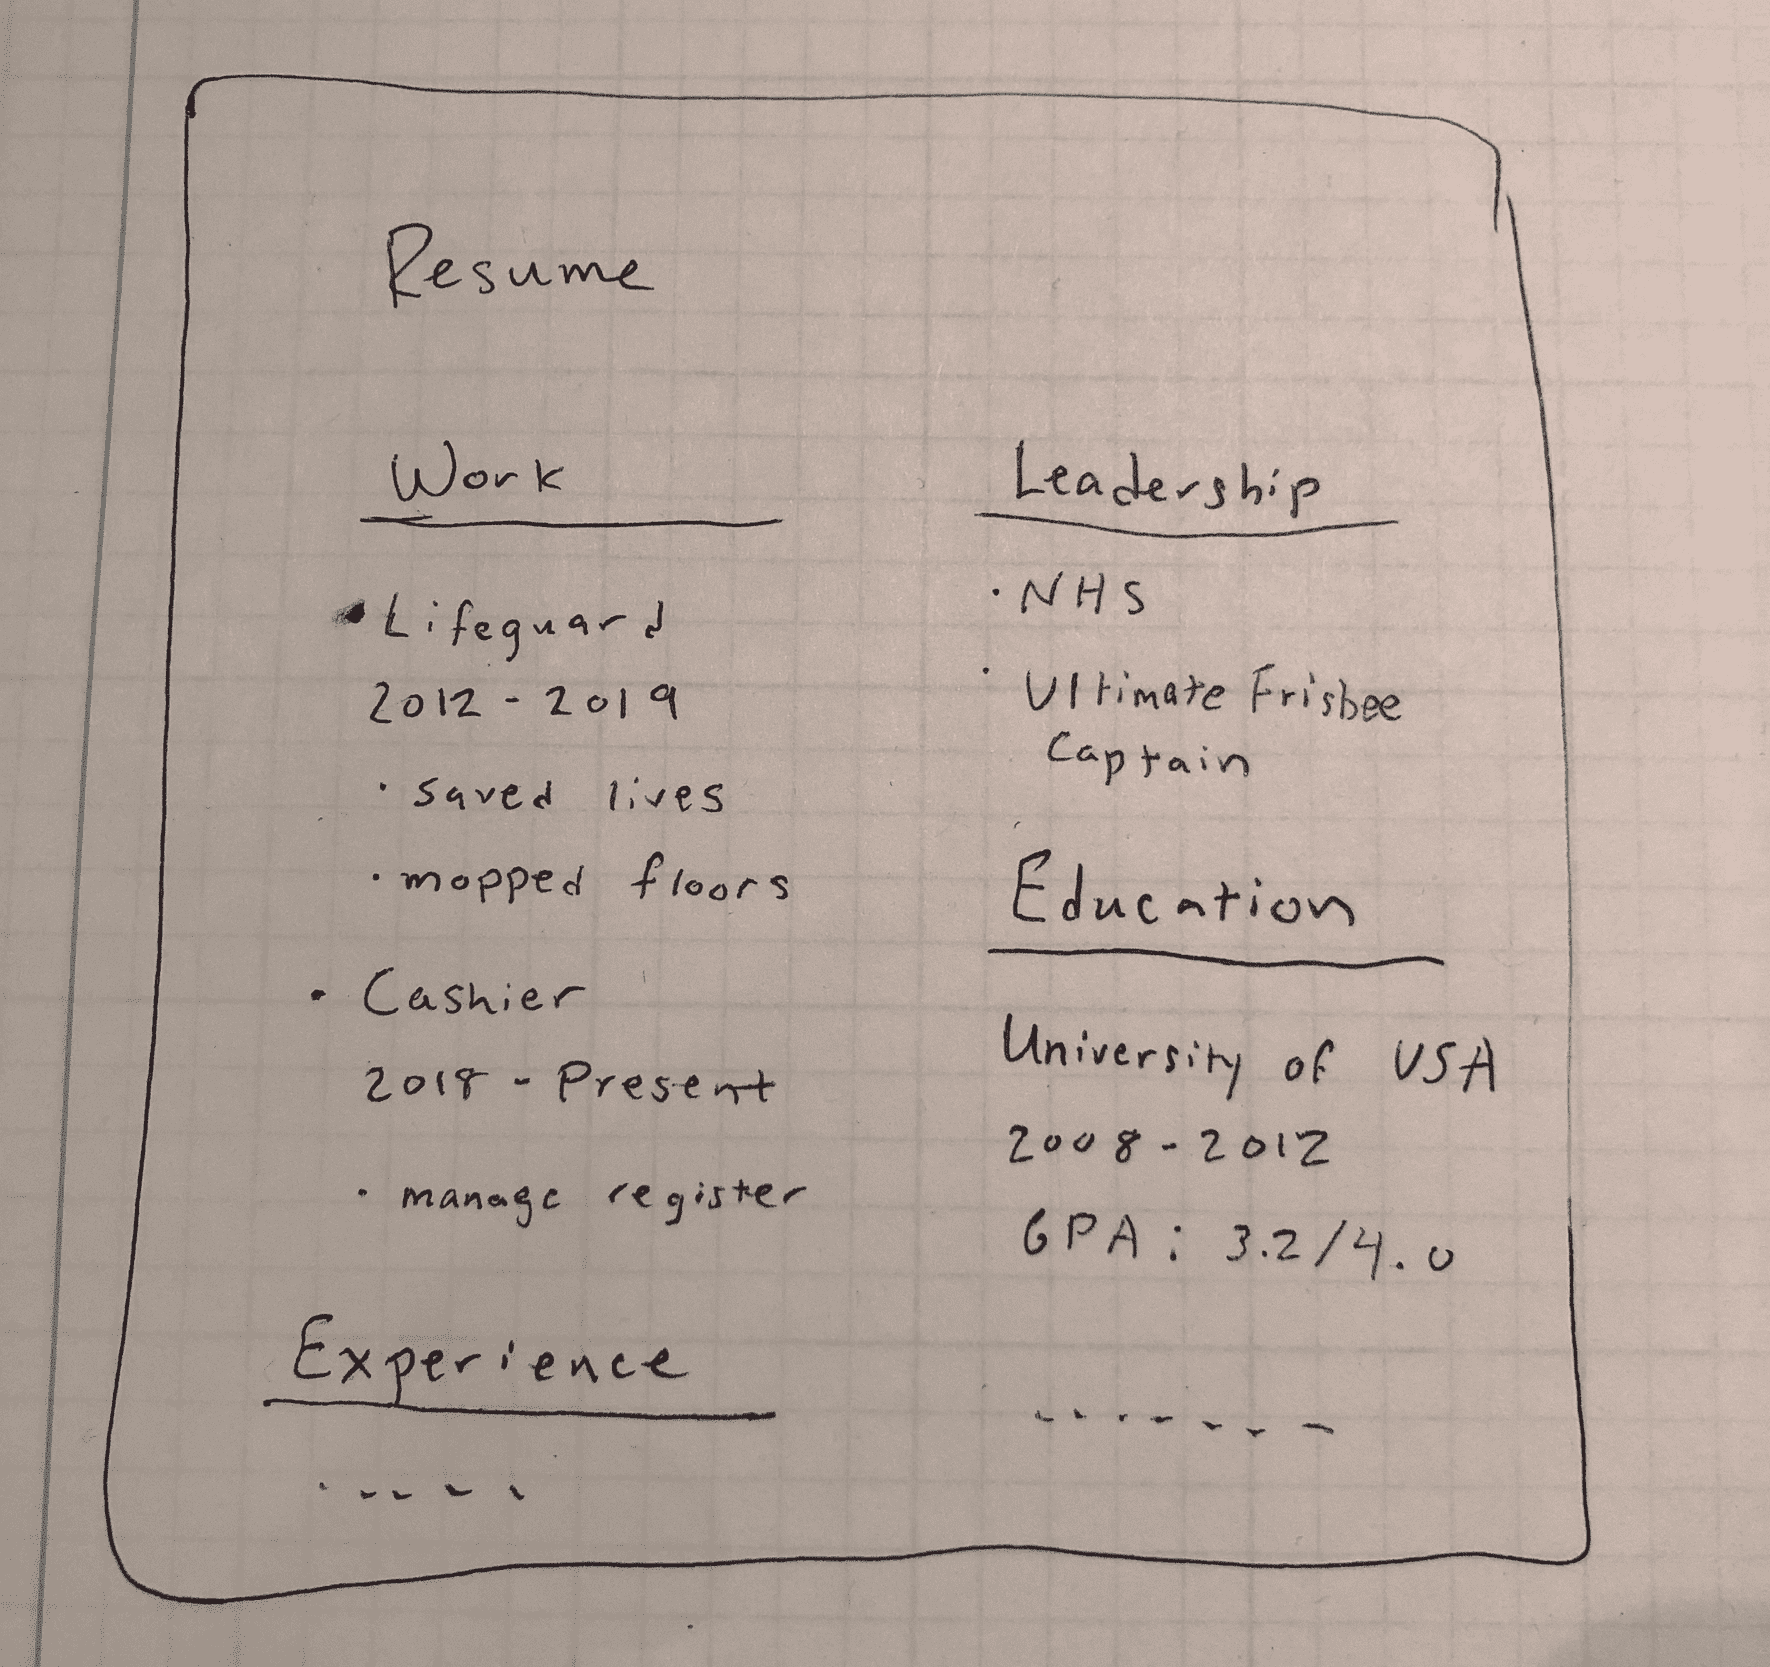 Resume
Work
• Lifeguard
2012 - 2019
• saved lives
• mopped floors
• Cashier
2018 - Present
• manage register
Experience
Leadership
• NHS
• Ultimate Frisbee
Captain
Education
University of USA
2008 - 2012
GPA: 3.2/4.0